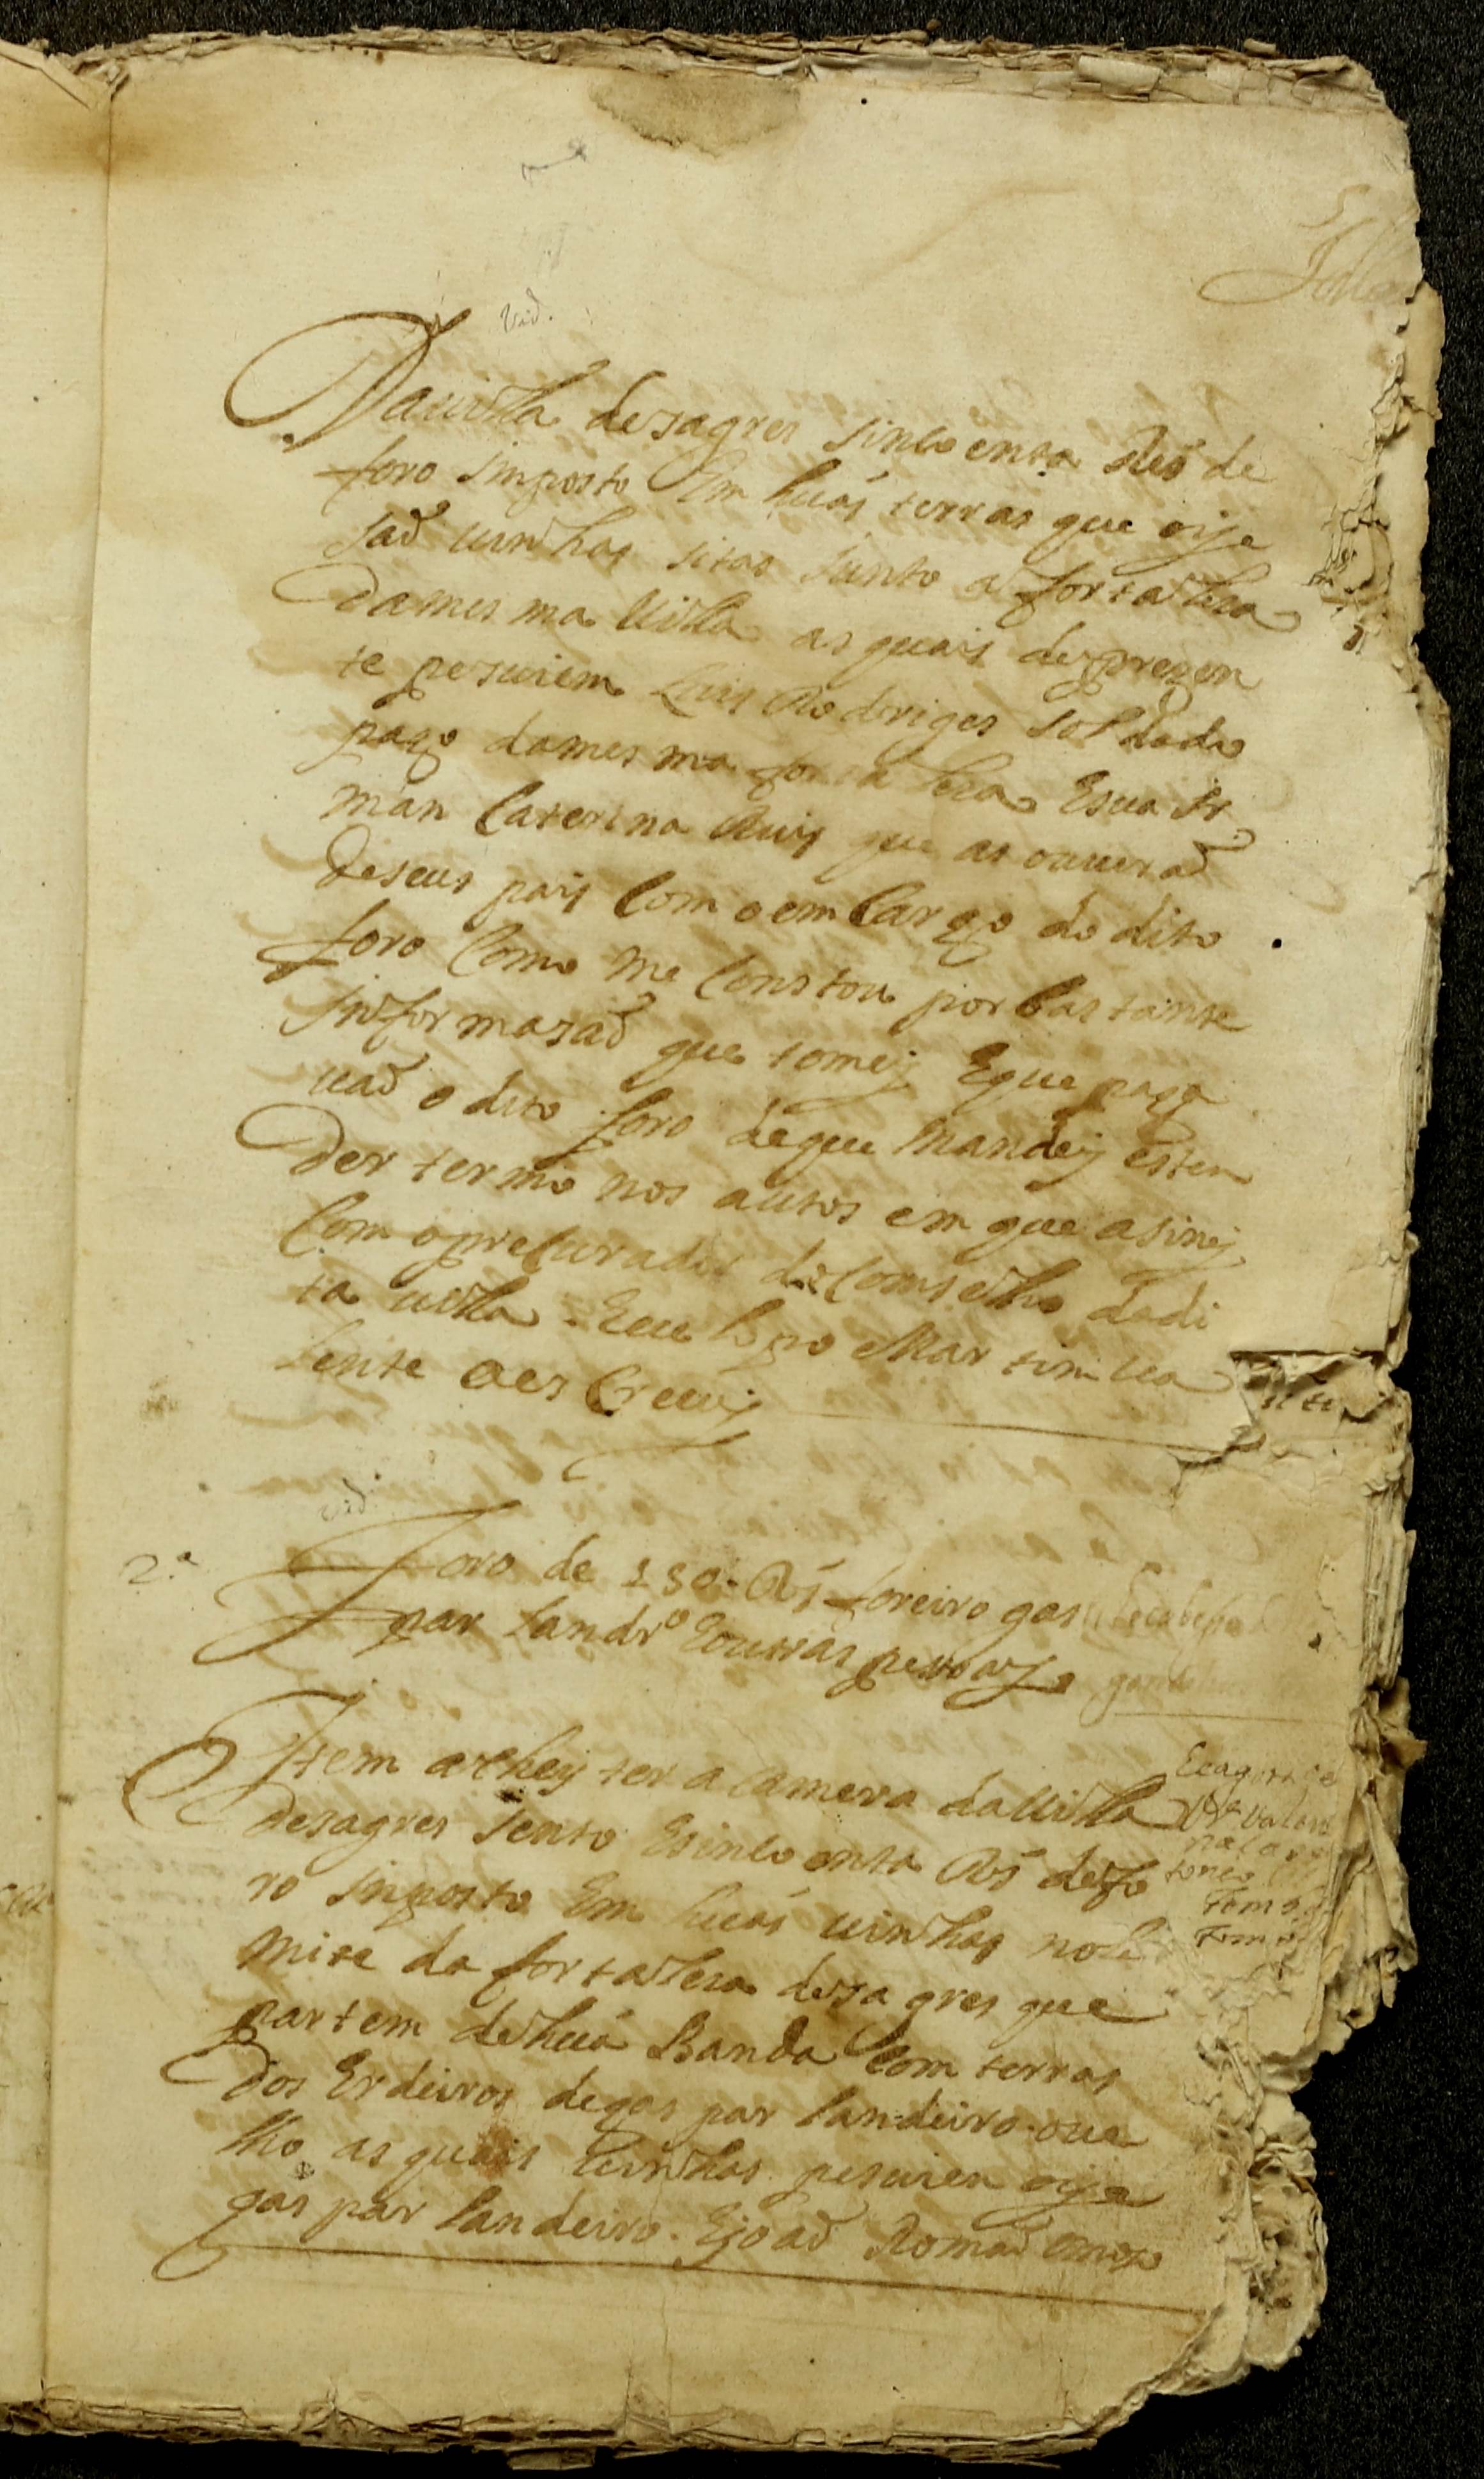 Vid.
Dauilla desagres sincoenta Reis de
foro Imposto Em huás terras que oije
saõ uinhas sitas Junto a fortalheza
damesma Uilla as quais deprezen
te pesuiem Luis Rodriges soldado
pago damesma fortalheza Esua Ir
man Caterina Ruis que as ouueraõ
deseus pais Com oemCargo do dito
foro Como me Constou por bastante
Informasaõ que tomej Eque paga
uaõ o dito foro deque Mandej esten
der termo nos autos em que asinej
Com oprecurador do Comselho dadi
ta uilla. Eeu Lço Martim ua
lente oes Creuij
vid.
2.ª
Foro de 150. Rs foreiro gas
par Landr.º Eoutras pessoas
Item achej ter a Camera daUilla
desagres sento Esincoenta Rs defo
ro Inposto Em huás uinhas noli
mite da fortalheza desagres que
partem dehuá Banda Com terras
dos Erdeiros degas par Landeiro oue
lho as quais Uinhas pesuien oije
gaspar Landeiro. Ejoaõ Romaõ omoso